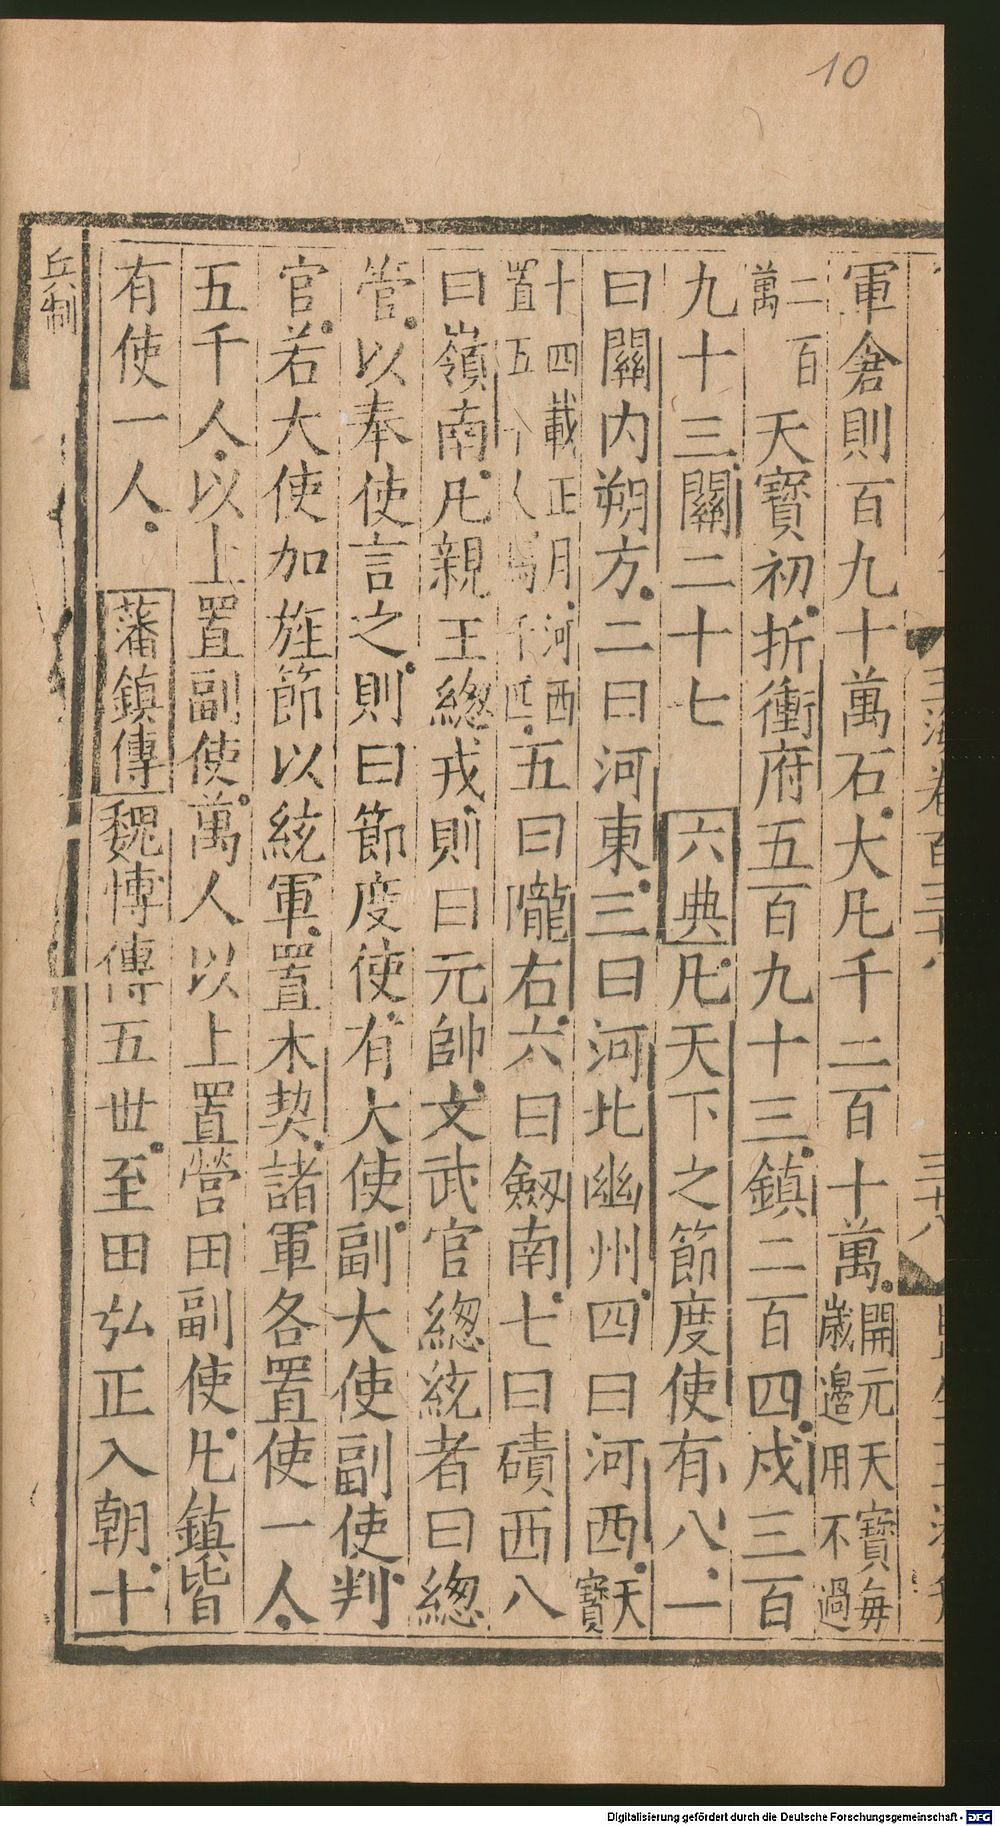 10
軍倉則百九十萬石大凡千二百一十萬開元天寶每歲邊用不過
二百萬 天寶初折衝府五百九十三鎮二百四戍三百
九十三關二十七 六典凡天下之節度使有八一
曰關内朔方二曰河東三曰河北幽州四曰河西天寶
十四載正月河西置五千人馬千匹五曰隴右六曰劒南七曰磧西八
曰嶺南凡親王緫戎則曰元帥文武官緫統者曰緫
管以奉使言之則曰節度使有大使副大使副使判
官若大使加旌節以統軍置木契諸軍各置使一人
五千人以上置副使萬人以上置營田副使凡鎮皆
有使一人 藩鎮傳魏博傳五世至田弘正入朝十
兵制
玉海卷百三十八
三十八
Digitalisierung gefördert durch die Deutsche Forschungsgemeinschaft - DFG